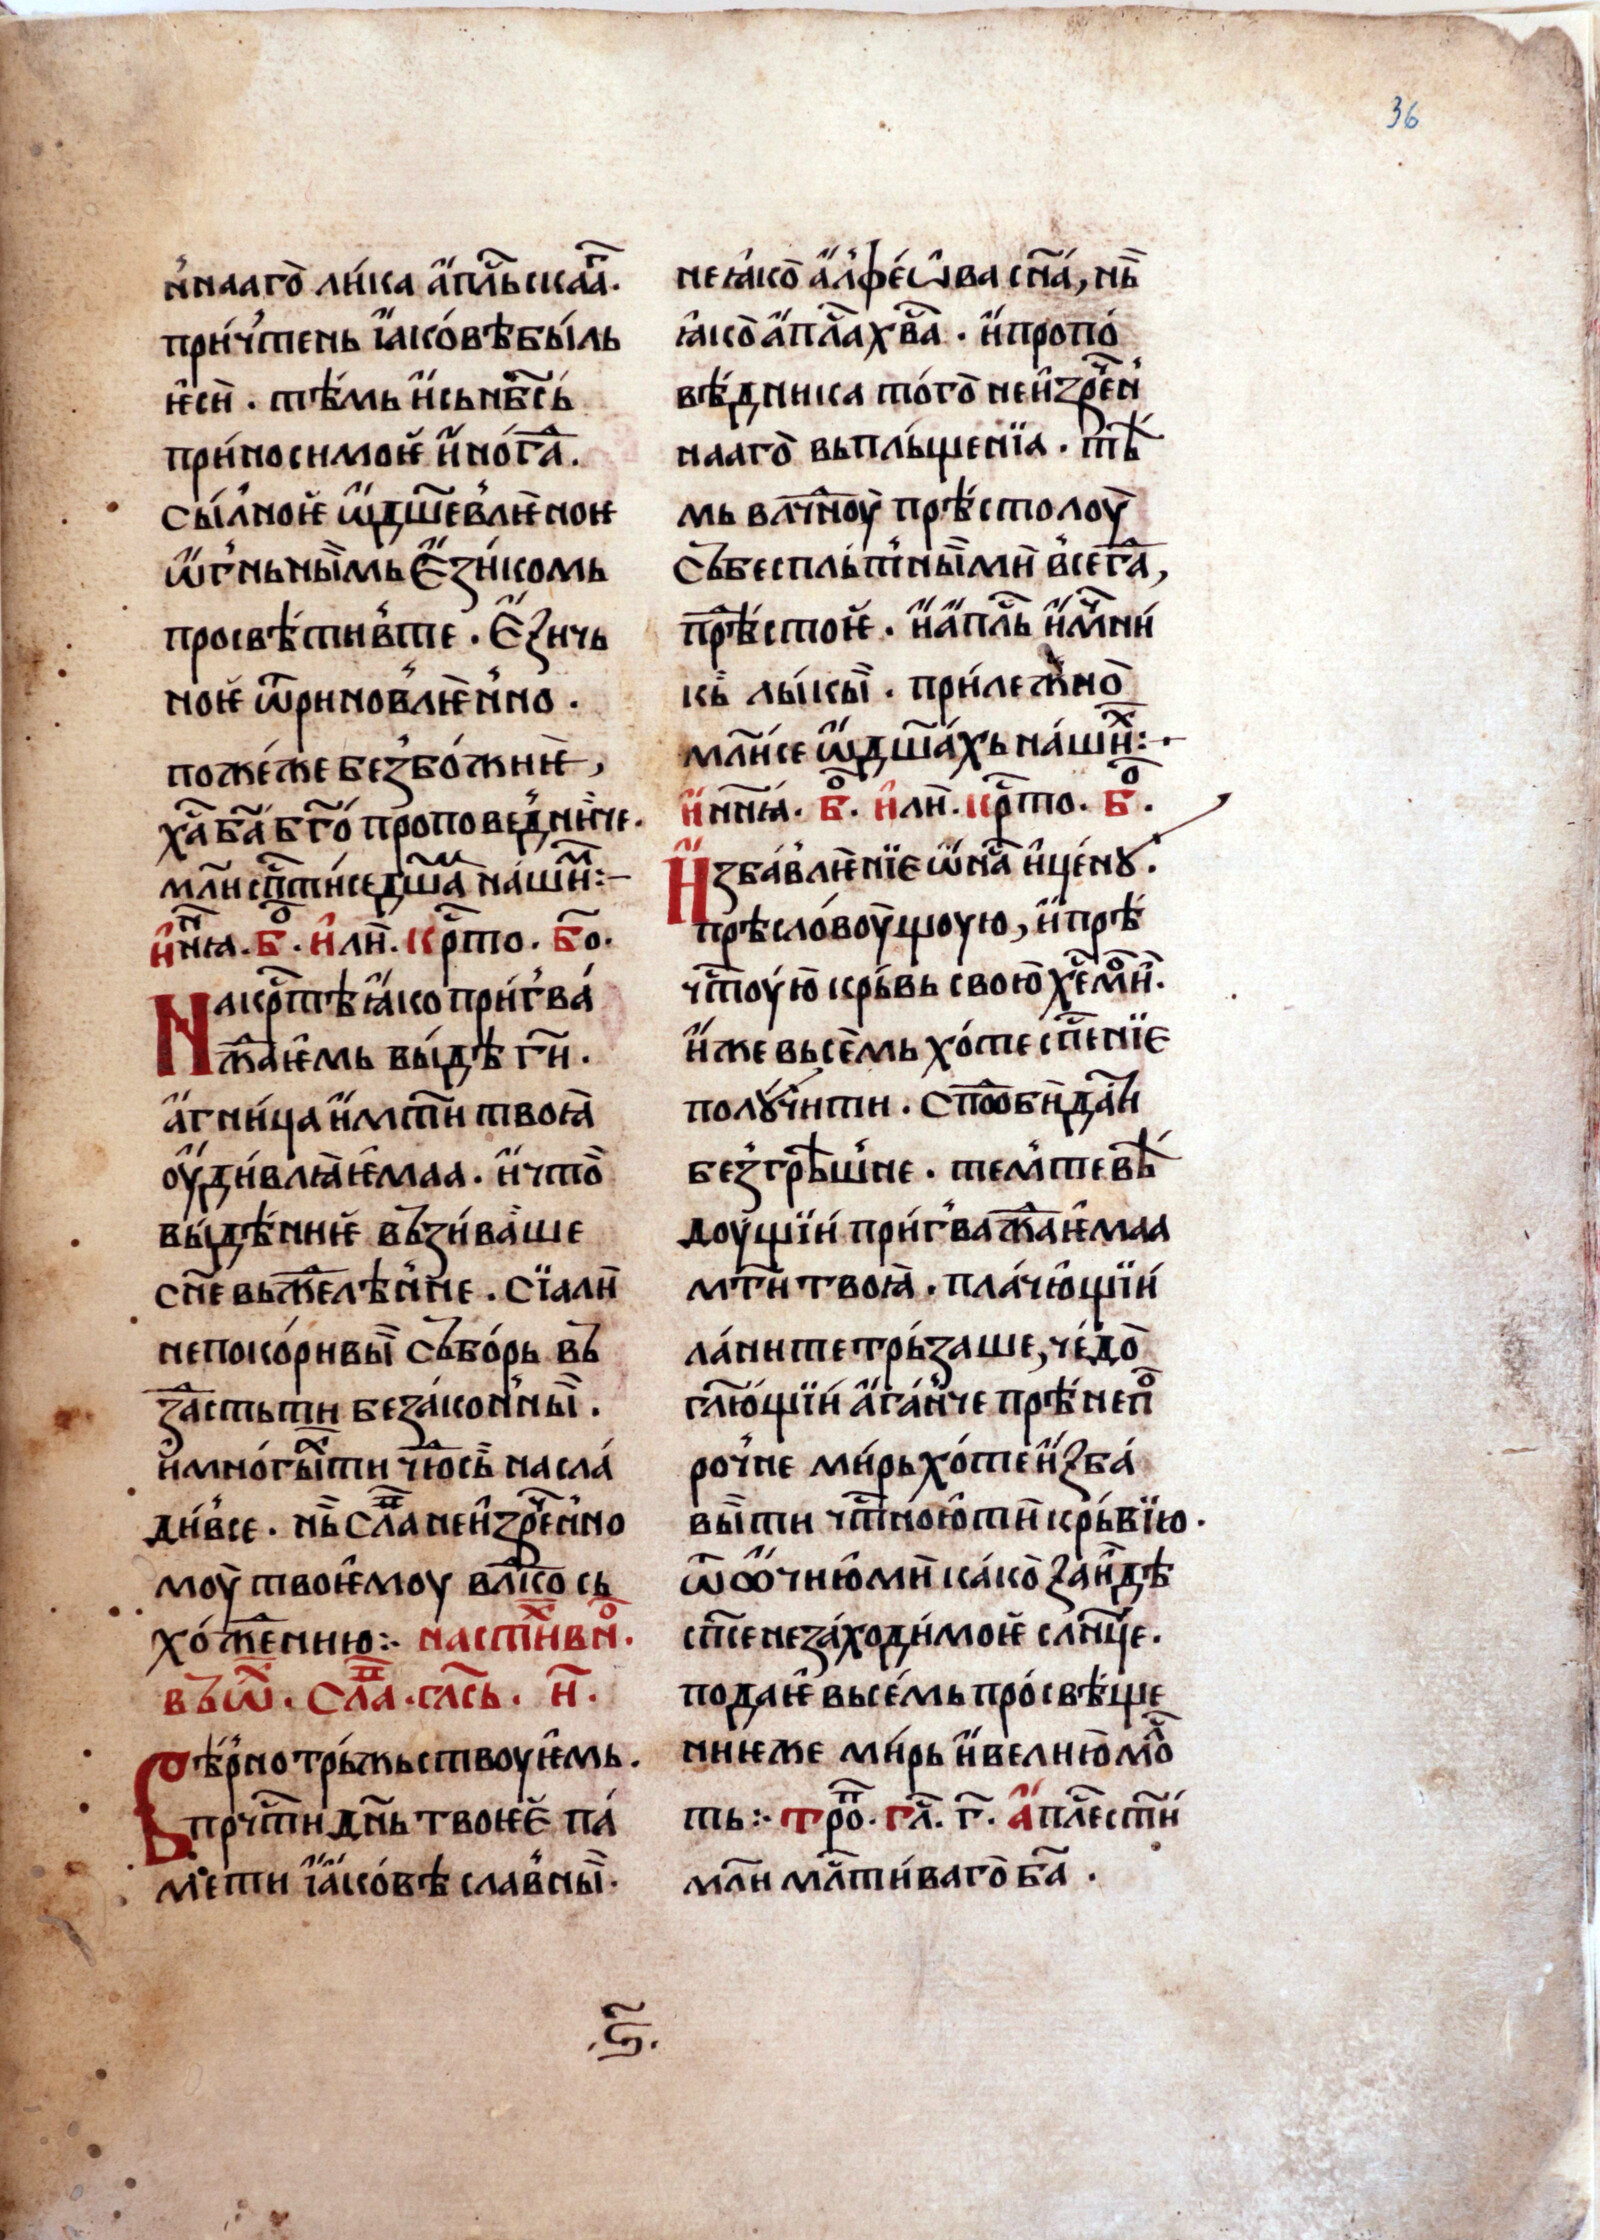 36
н҆наагѡ̀ ли́ка а҆́пⷭ҇льскаⷢ҇.
при́чтень і҆ако́вѣ бы́ль
ѥ҆сѝ. тѣ́мь и҆ сь нб҃сь
при́носимоѥ и҆ но́га҄.
сы́лноѥ ѡ҆дш҃евлѥ̀ноѥ
ѡ҆́гньны̏мь Е҆зи́комь
просвѣ́тивⷲте. Е҆зичь
ноѥ ѿриновлѥ̀нно.
поже́же безбо́жниѥ,
ха҃ ба҃ бг҃о́ проповѣ́дниче.
мл҃и сп҃ти́се дш҃аⷨ наши́ⷨ:–
и҆́нꙗ. бⷪ. и҆лѝ. крⷭ҇то. бо҃.
На крⷭ҇тѣ ꙗ҆ко при́гва́
жⷣаѥ҆мь вы́дѣ гн҃.
а҆́гни́ца и҆ мт҃и твоꙗ̀
оу҆ди́влꙗѥ҆маа. и҆ что̀
вы́дѣ́ниѥ въззи́ваше
сн҃е вьжⷣелѣ́нне. Сїа ли̏
непоко́ривы̏ съборь въ
зⷣастьти безако́нны̏.
и҆ мно́гы̏ти чю҃сь насла́
ди́все. нь̏ слⷡ҇а неи҆зрⷱ҇е́нно
моу̀ твоѥ҆моу влⷣко сь
хо́жⷣе́нию:· на стⷯи́внⷪ.
въ ѿ. слⷡ҇а. гл҃сь. и҃.
Вѣ́рно трь́жьствоуѥ҆мь.
прⷱ҇чти днь҃ твоѥѐ па́
мети і҆ако́вѣ славны̏.
не ꙗ҆ко̀ а҆лфе́ѡва сн҃а́, нь̏
ꙗ҆ко̀ а҆пⷭ҇ла хв҃а. и҆ пропо́
вѣ́дника то́го̀ неи҆зрⷱ҇е́н
нааго̀ вьплы́щенїа. тѣ́
мь влⷣчноу̀ прѣ́столоу̀
Съ бесплы́тны̏мѝ все́га҄,
прⷣѣстоѥ. и҆ а҆пⷭ҇ль и҆ мⷱ҇ни
кь̏ лы́кы̏. при́лежно̀
мл҃и́се ѡ҆ дш҃ахь на́шиⷯ:·
и҆ нн҃ꙗ. бⷪ. и҆лѝ. крⷭ҇то. бⷪ.
И҆збавлѥ̀нїѥ ѡ҆ на҃ и҆ цѣ́нꙋ.
прѣсло́воу́щоую, и҆ прѣ
чⷭ҇тоую̀ кры́вь свою̀ хе҃ мо́и.
и҆же вьсѣ́мь хо́те сп҃енїѥ
полꙋчи́ти. Сподⷪби́ да҃ и
безгрѣ́шне. тем́ те вѣ
доу́щїи при́гважⷣаѥ҆маа
мт҃и твоꙗ̀. пла́чю҆щїи
ла́ните трь́заше, че́до̀
гл҃ю́щїи а҆га́нче прѣ непⷪ
рочне ми́рь хо́те и҆зба́
вы̏ти чⷭ҇тно́ю҆ти кры́вїю.
ѿ о҆чию҆мѝ ка́ко̀ заи́дѣ
сп҃се незаходи́моѥ сл҃нце.
подаѥ вьсе́мь про́свѣще
ниѥ же ми́рь и҆ велию̀ млⷭ҇о
ть:· трⷪ. гл҃. г҃. А҆пⷭ҇ле ст҃и́
мл҃и млⷭ҇ти́ваго̀ ба҃.
.ѕ҃.